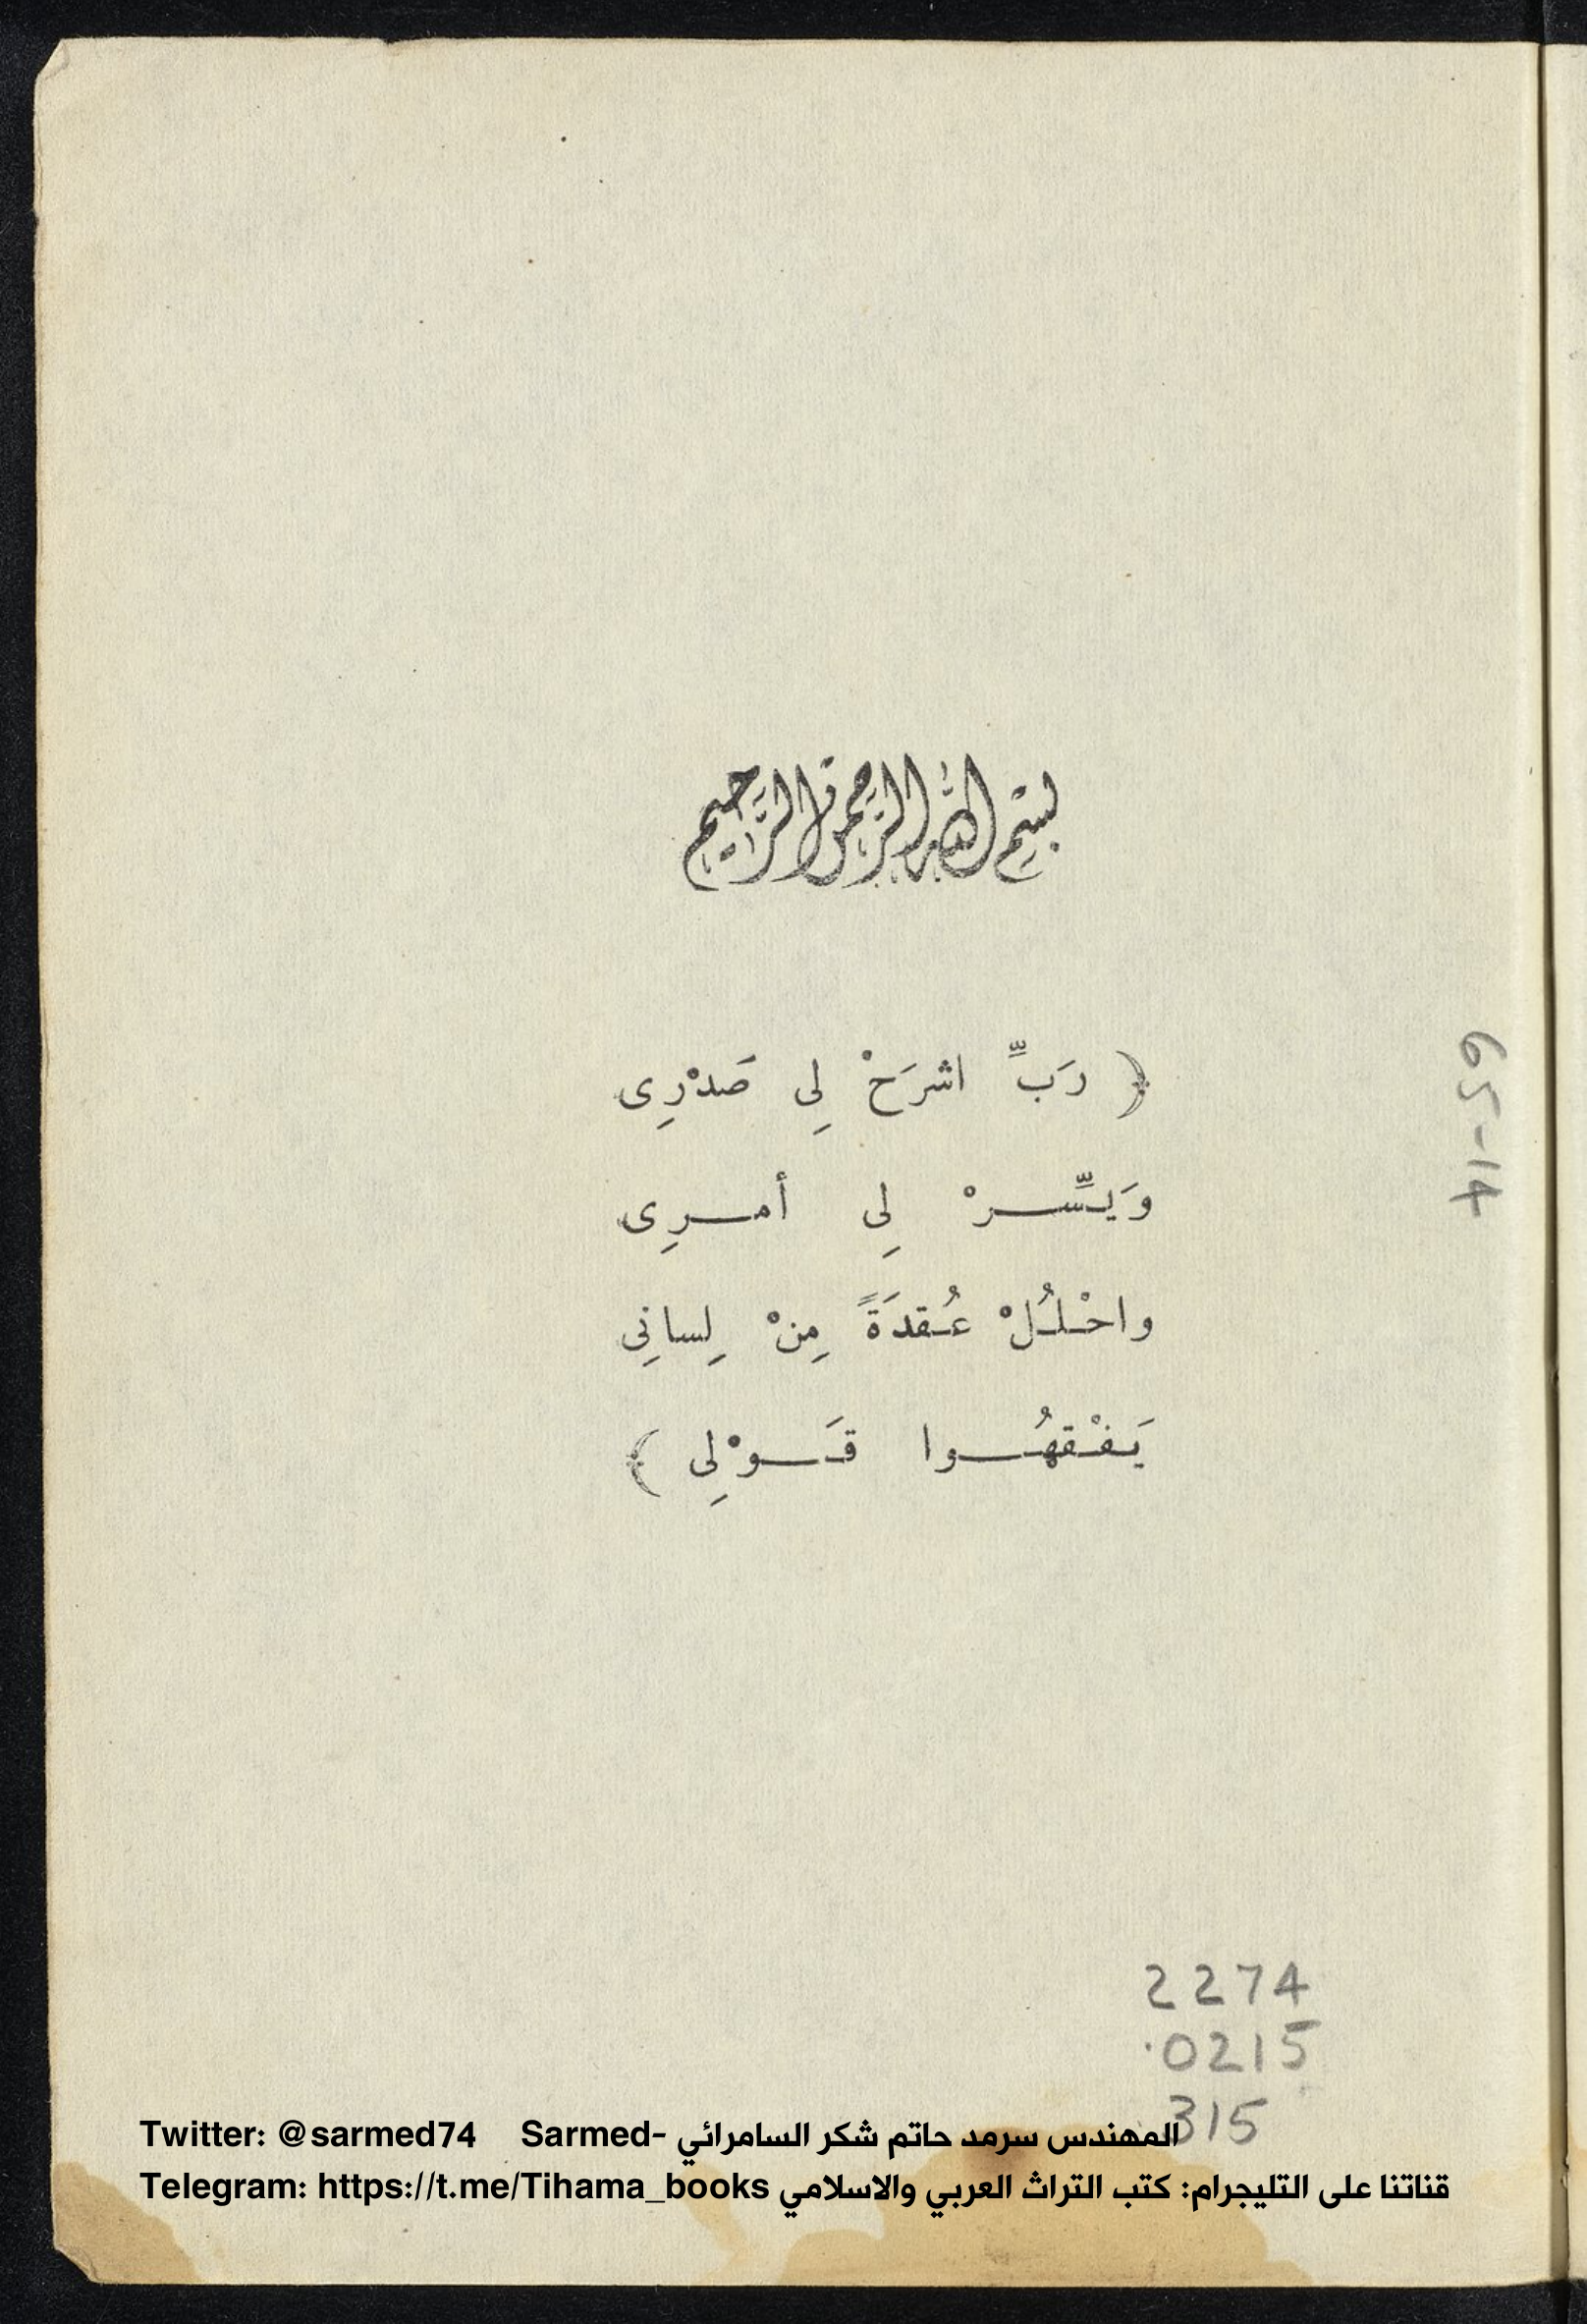 بسم الله الرحمن الرحيم
﴿ رَبِّ اشرَحْ لِى صَدْرِى
وَيـسِّـــرْ لِى أمـــرِى
واحْـلُـلْ عُـقدَةً مِنْ لِسانِى
يَـفْـقهُـــوا قَــوْلِى ﴾
65-14
2274
.0215
315
Twitter: @sarmed74 Sarmed- المهندس سرمد حاتم شكر السامرائي
Telegram: https://t.me/Tihama_books قناتنا على التليجرام: كتب التراث العربي والاسلامي